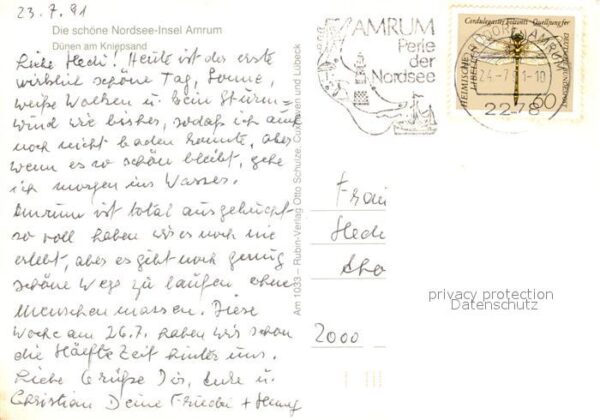 23.7.91
Die schöne Nordsee-Insel Amrum
Dünen am Kniepsand
Liebe Hedi! Heute ist der erste
wirklich schöne Tag, Sonne,
weiße Wolken u. kein Sturm=
wind wie bisher, sodaß ich auch
noch nicht baden konnte, aber
wenn es so schön bleibt, gehe
ich morgen ins Wasser.
Amrum ist total ausgebucht-
so voll haben wir es noch nie
erlebt, aber es gibt noch genug
schöne Wege zu laufen ohne
Menschenmassen. Diese
Woche am 26.7. haben wir schon
die Hälfte Zeit hinter uns.
Liebe Grüße Dir, u.
Christian Deine +
Am 1033 – Rubin-Verlag Otto Schulze, Cuxhaven und Lübeck
AMRUM
Perle
der
Nordsee
24.-7. 1-10
2278
Cordulegaster
HEIMISCHE
LIBELLEN
60
Hedi
2000
privacy protection
Datenschutz